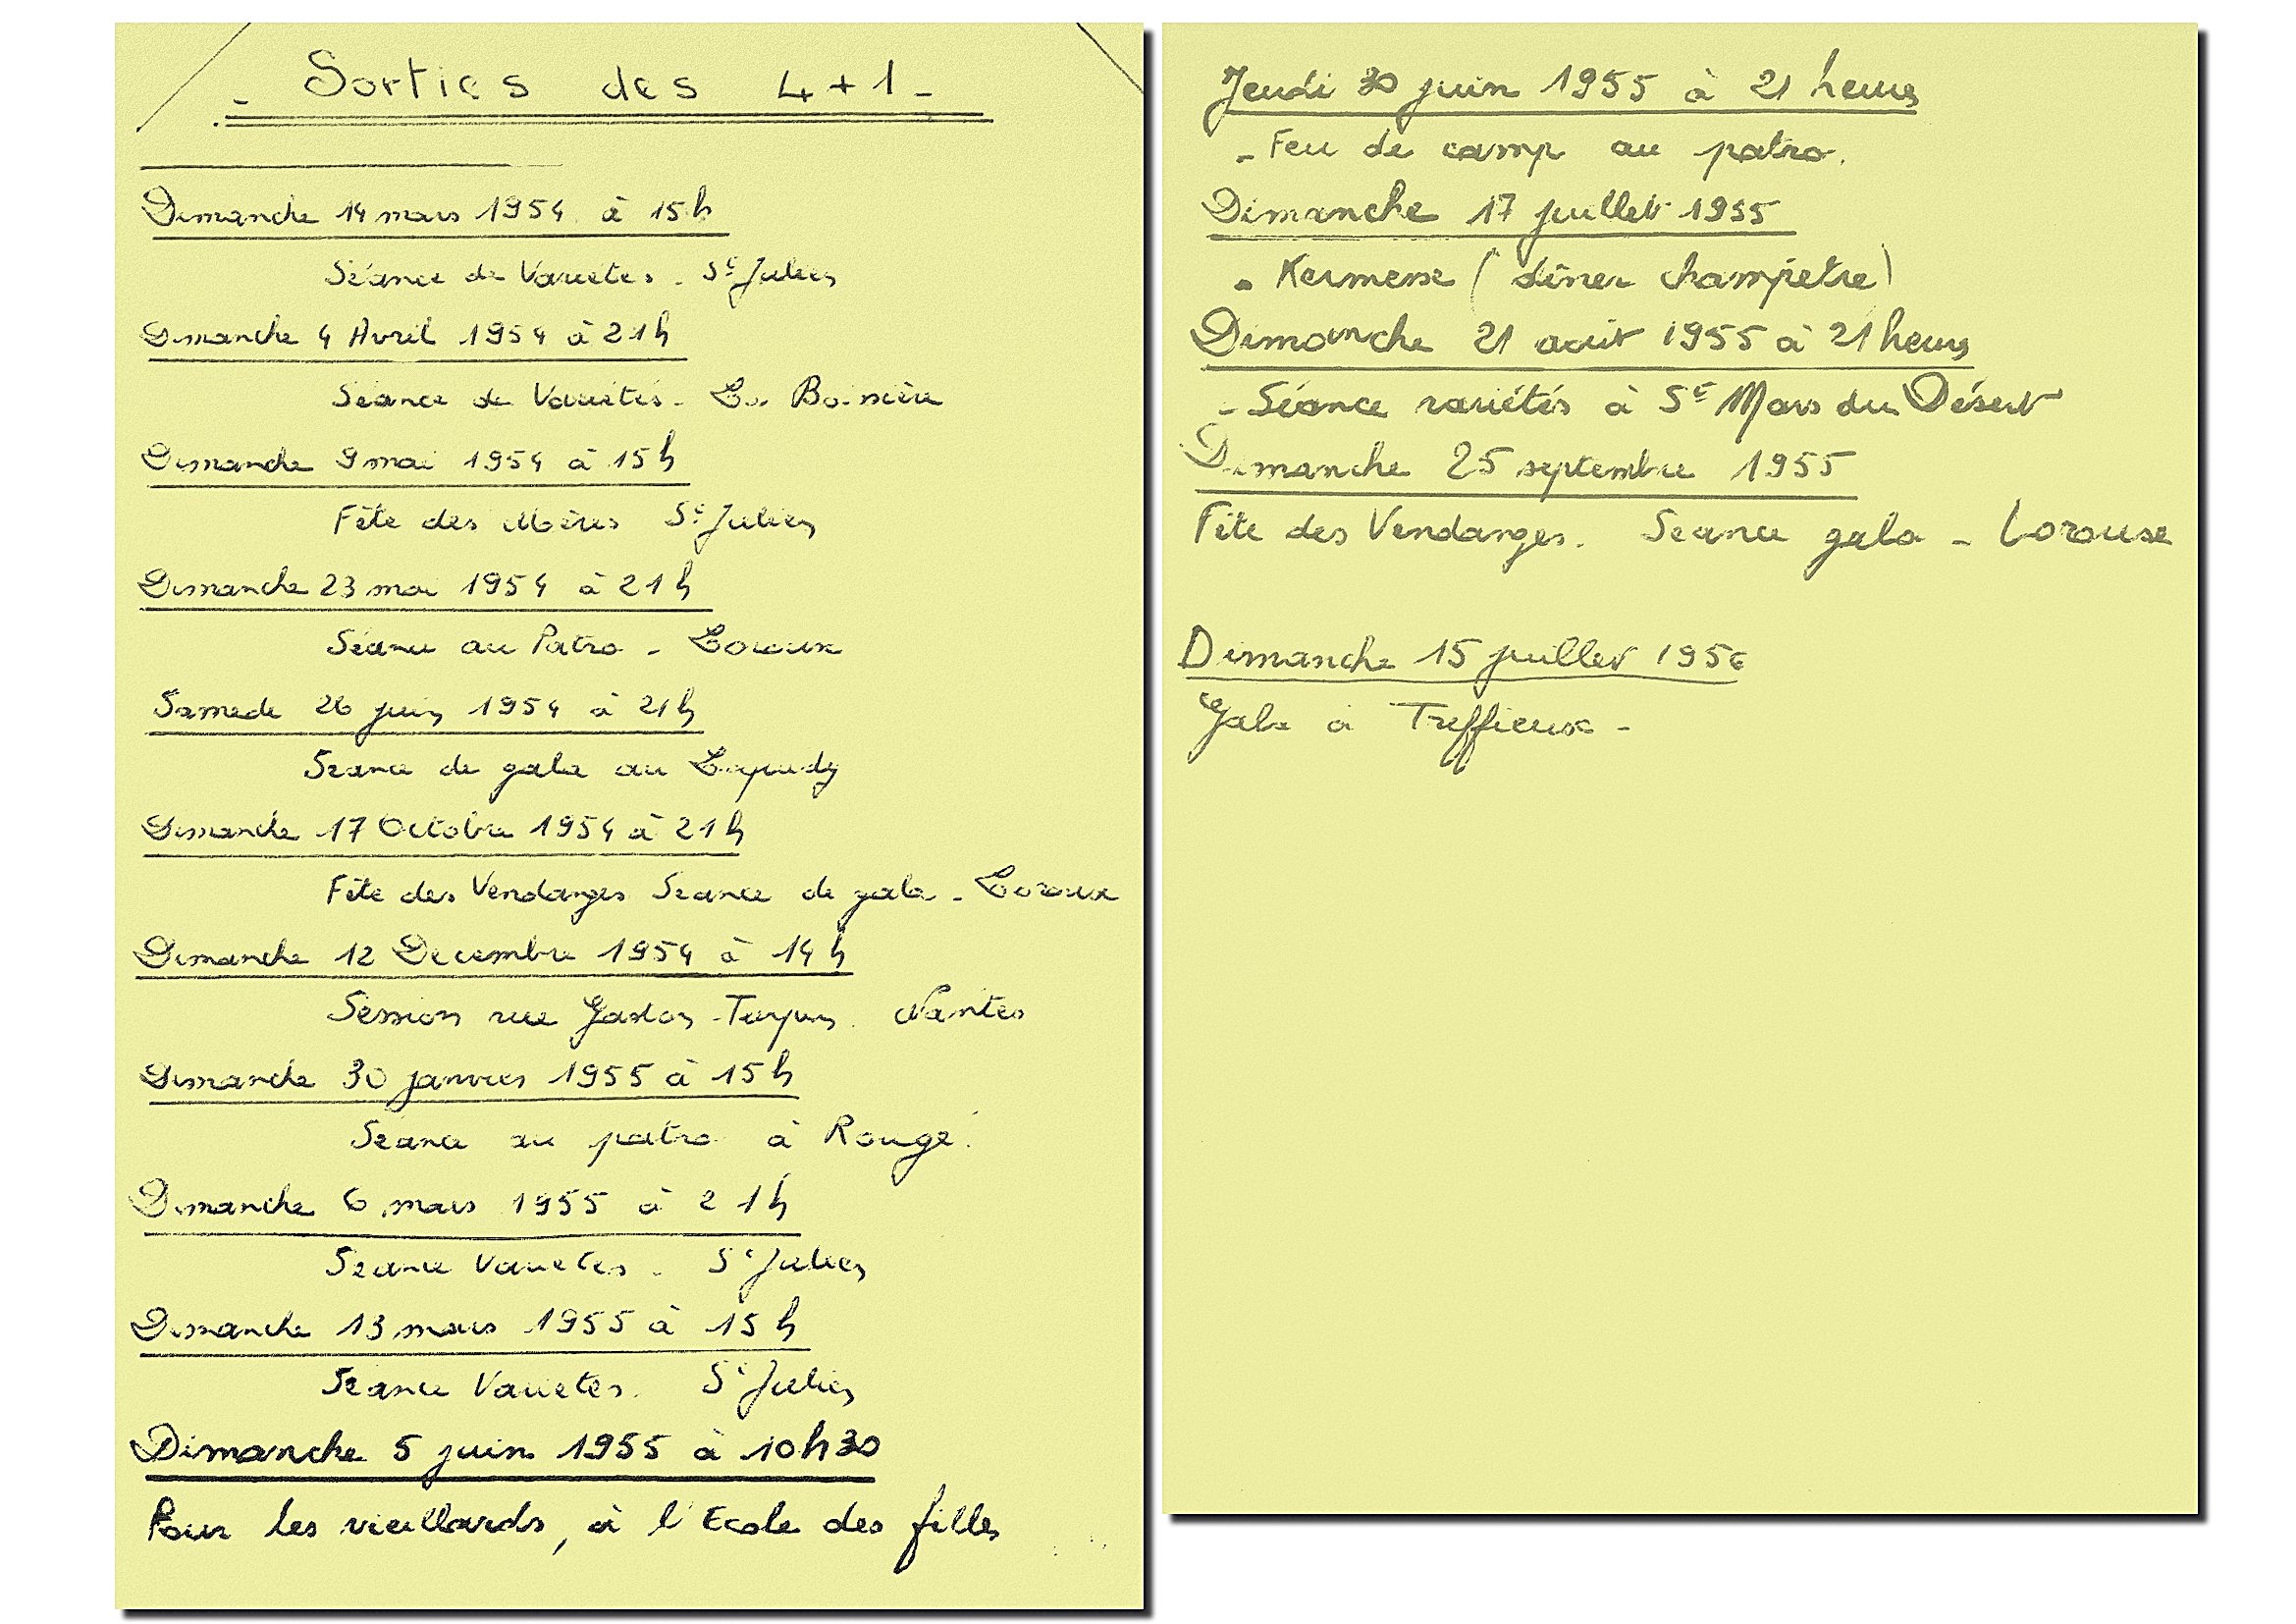 - Sorties des 4+1 -
Dimanche 14 mars 1954 à 15h
Séance de Variétés - St Julien
Dimanche 4 Avril 1954 à 21h
Séance de Variétés - La Boissière
Dimanche 9 mai 1954 à 15h
Fête des Mères St Julien
Dimanche 23 mai 1954 à 21h
Séance au Patro - Loroux
Samedi 26 juin 1954 à 21h
Séance de gala au
Dimanche 17 Octobre 1954 à 21h
Fête des Vendanges Séance de gala - Loroux
Dimanche 12 Decembre 1954 à 14h
Session rue Gaston Turpin. Nantes
Dimanche 30 janvier 1955 à 15h
Séance au patro à Rougé.
Dimanche 6 mars 1955 à 21h
Séance Variétés - St Julien
Dimanche 13 mars 1955 à 15h
Séance Variétés. St Julien
Dimanche 5 juin 1955 à 10h30
Pour les vieillards, à l'Ecole des filles
Jeudi 30 juin 1955 à 21 heures
- Feu de camp au patro.
Dimanche 17 juillet 1955
- Kermesse (dîner champêtre)
Dimanche 21 août 1955 à 21 heures
- Séance variétés à St Mars du Désert
Dimanche 25 septembre 1955
Fête des Vendanges. Séance gala - Loroux
Dimanche 15 juillet 1956
Gala à Treffieux -